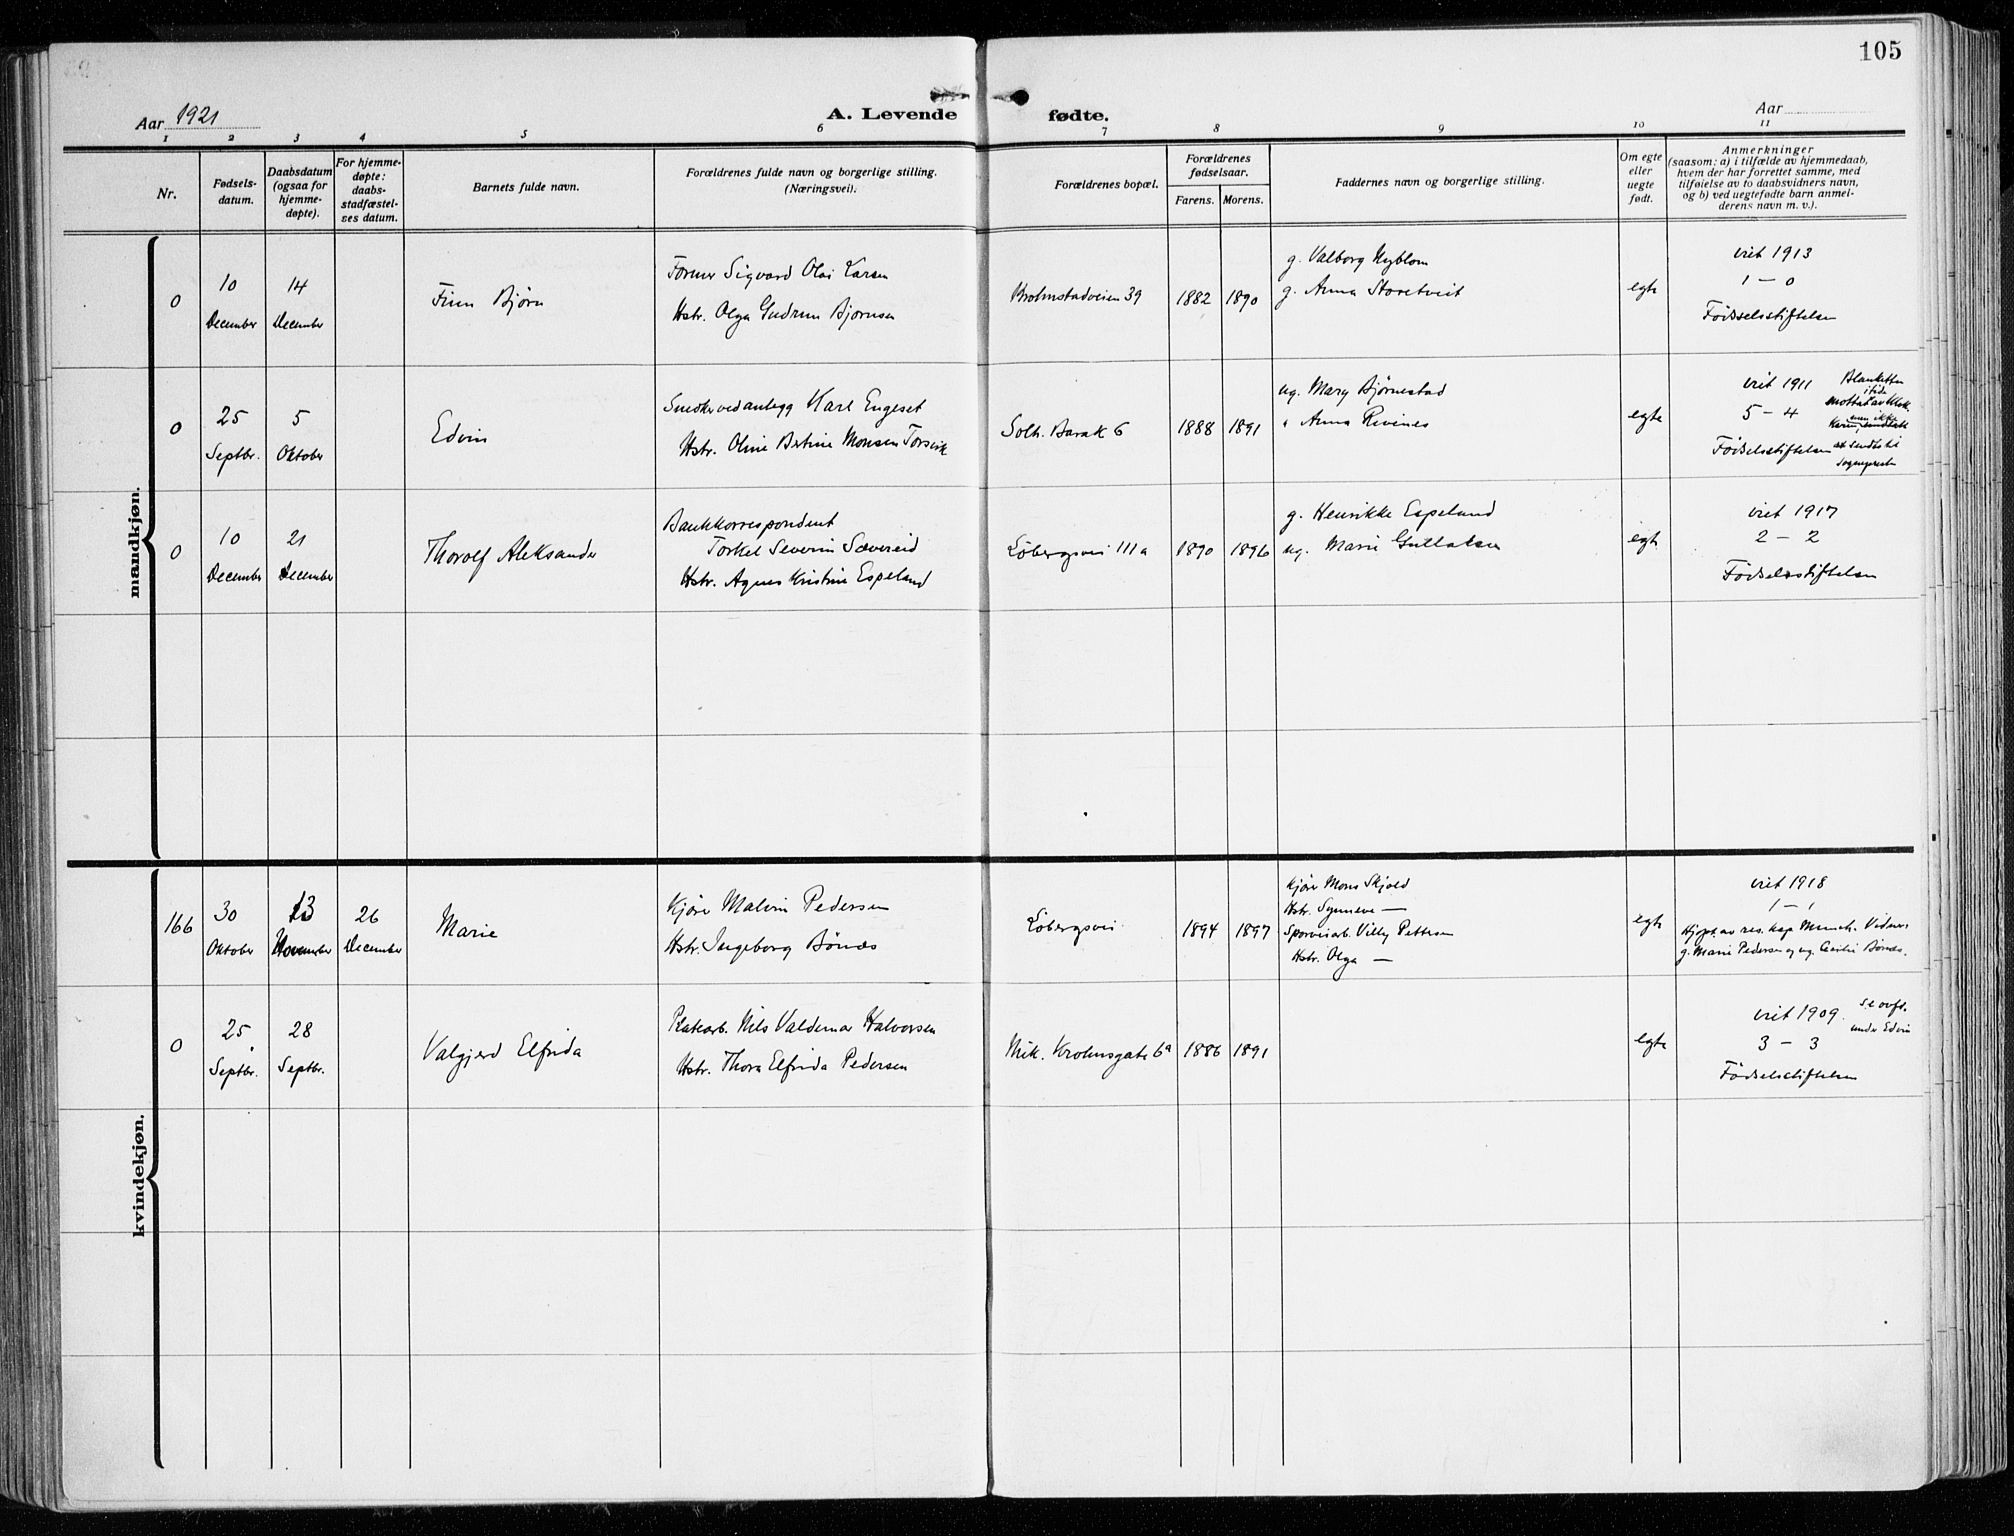 105
Aar 1921
A. Levende fødte.
Aar
1 2 3 4 5 6 7 8 9 10 11
Nr.
Fødsels-
datum.
Daabsdatum
(ogsaa for
hjemme-
døpte).
For hjemme-
døpte:
daabs-
stadfæstel-
ses datum.
Barnets fulde navn.
Forældrenes fulde navn og borgerlige stilling.
(Næringsvei).
Forældrenes bopæl.
Forældrenes
fødselsaar.
Farens. Morens.
Faddernes navn og borgerlige stilling.
Om egte
eller
uegte
født.
Anmerkninger
(saasom: a) i tilfælde av hjemmedaab,
hvem der har forrettet samme, med
tilføielse av to daabsvidners navn,
og b) ved uegtefødte barn anmel-
derens navn m. v.).
mandkjøn.
0
10
December
14
December
Finn Bjørn
Former Sigvard Olai Larsen
Hstr. Olga Gudrun Bjørnsen
Krohnstadveien 39
1882 1890
g. Valborg Nyblom
g. Anna Storetveit
egte
viet 1913
1 - 0
Fødselsstiftelsen
0
25
Septbr.
5
Oktober
Edvin
Smed ved anlegg Karl Engeset
Hstr. Oline Bertine Monsen Torsvik
Solh. Barak 6
1888 1891
ug. Mary Bjørnestad
" Anna Rivenes
egte
viet 1911
5 - 4
Fødselsstiftelsen
Blanketten
mottat av Klok.
men ikke
sendt til
Sogneprest
0
10
December
21
December
Thorolf Aleksander
Bankkorrespondent
Torkel Severin Sævereid
Hstr. Agnes Kristine Espeland
Löbergsvei 111a
1890 1896
g. Henrikke Espeland
ug. Marie Gullaksen
egte
viet 1917
2 - 2
Fødselsstiftelsen
kvindekjøn.
166
30
Oktober
13
November
26
December
Marie
Kjører Malvin Pedersen
Hstr. Ingeborg Bönes
Löbergsvei
1894 1897
Kjører Mons Skjold
Hstr. Synneve —
Sporveisarb. Villy Pettersen
Hstr. Olga —
egte
viet 1918
1 - 1
Hjdpt. av res. kap. Munch. Vidner:
g. Marie Pedersen og ug. Cecilie Bönes.
0
25
Septbr.
28
Septbr.
Valgjerd Elfrida
Platearb. Nils Valdemar Halvorsen
Hstr. Thora Elfrida Pedersen
Mik. Krohnsgate 6a
1886 1891
egte
viet 1909
3 - 3
Fødselsstiftelsen
se ovfr.
under Edvin